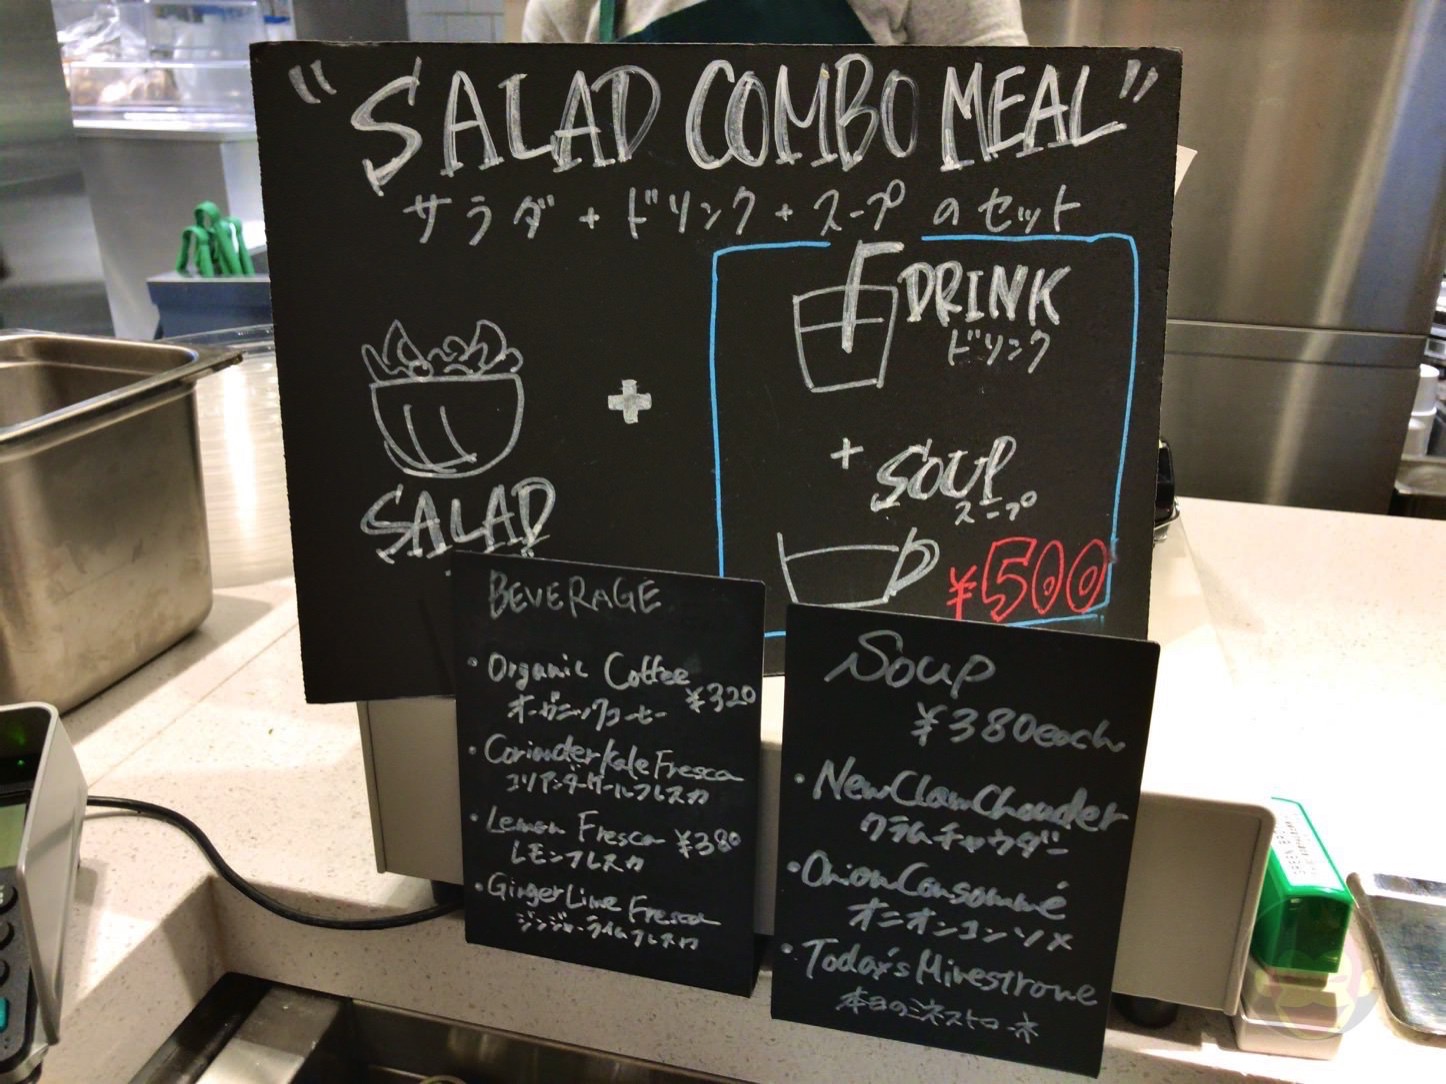 "SALAD COMBO MEAL"
サラダ+ドリンク+スープのセット
DRINK
ドリンク
+
+ SOUP
スープ
SALAD
¥500
BEVERAGE
• Organic Coffee
¥320
オーガニックコーヒー
• Coriander Kale Fresca
コリアンダーケールフレスカ
• Lemon Fresca ¥380
レモンフレスカ
• Ginger Lime Fresca
ジンジャーライムフレスカ
Soup
¥380each
• New Clam Chowder
クラムチャウダー
• Onion Consommé
オニオンコンソメ
• Today's Minestrone
本日のミネストローネ